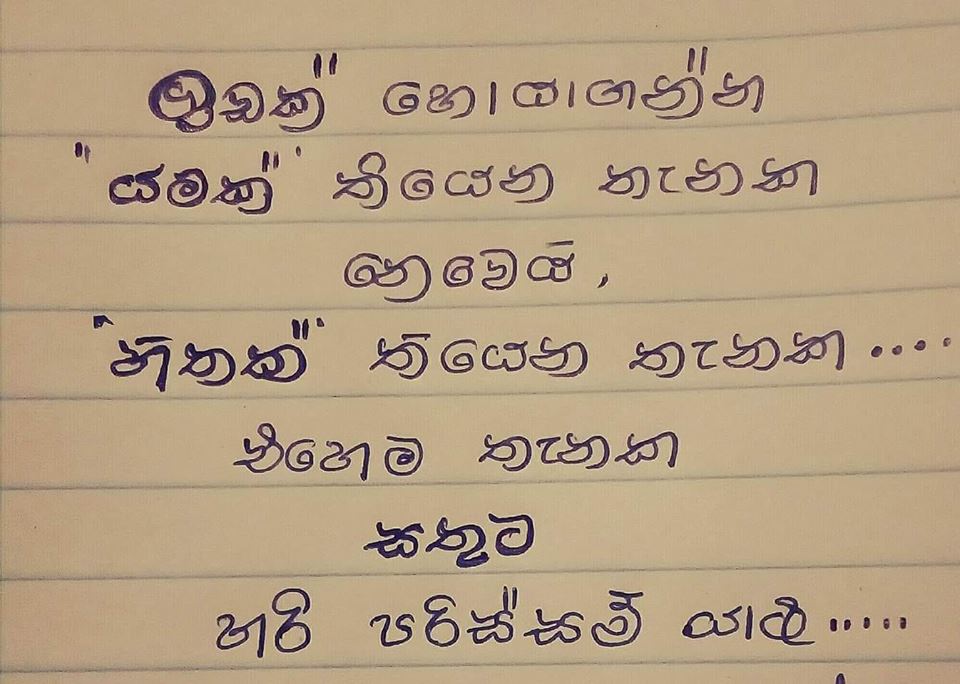 ඉඩක්" හොයාගන්න
"යමක්" තියෙන තැනක
නෙවෙයි,
"හිතක්" තියෙන තැනක....
එහෙම තැනක
සතුට
හරි පරිස්සම් යාළු.....